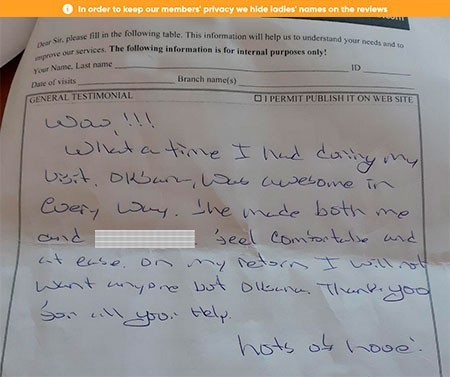 In order to keep our members' privacy we hide ladies' names on the reviews
.com
Dear Sir, please fill in the following table. This information will help us to understand your needs and to
improve our services. The following information is for internal purposes only!
Your Name, Last name ID
Date of visits Branch name(s)
GENERAL TESTIMONIAL I PERMIT PUBLISH IT ON WEB SITE
Wow, !!!
What a time I had during my
visit. Oksana, was awesome in
every way. She made both me
and feel comfortable and
at ease. On my return I will not
want anyone but Oksana. Thank you
for all your help.
Lots of Love.